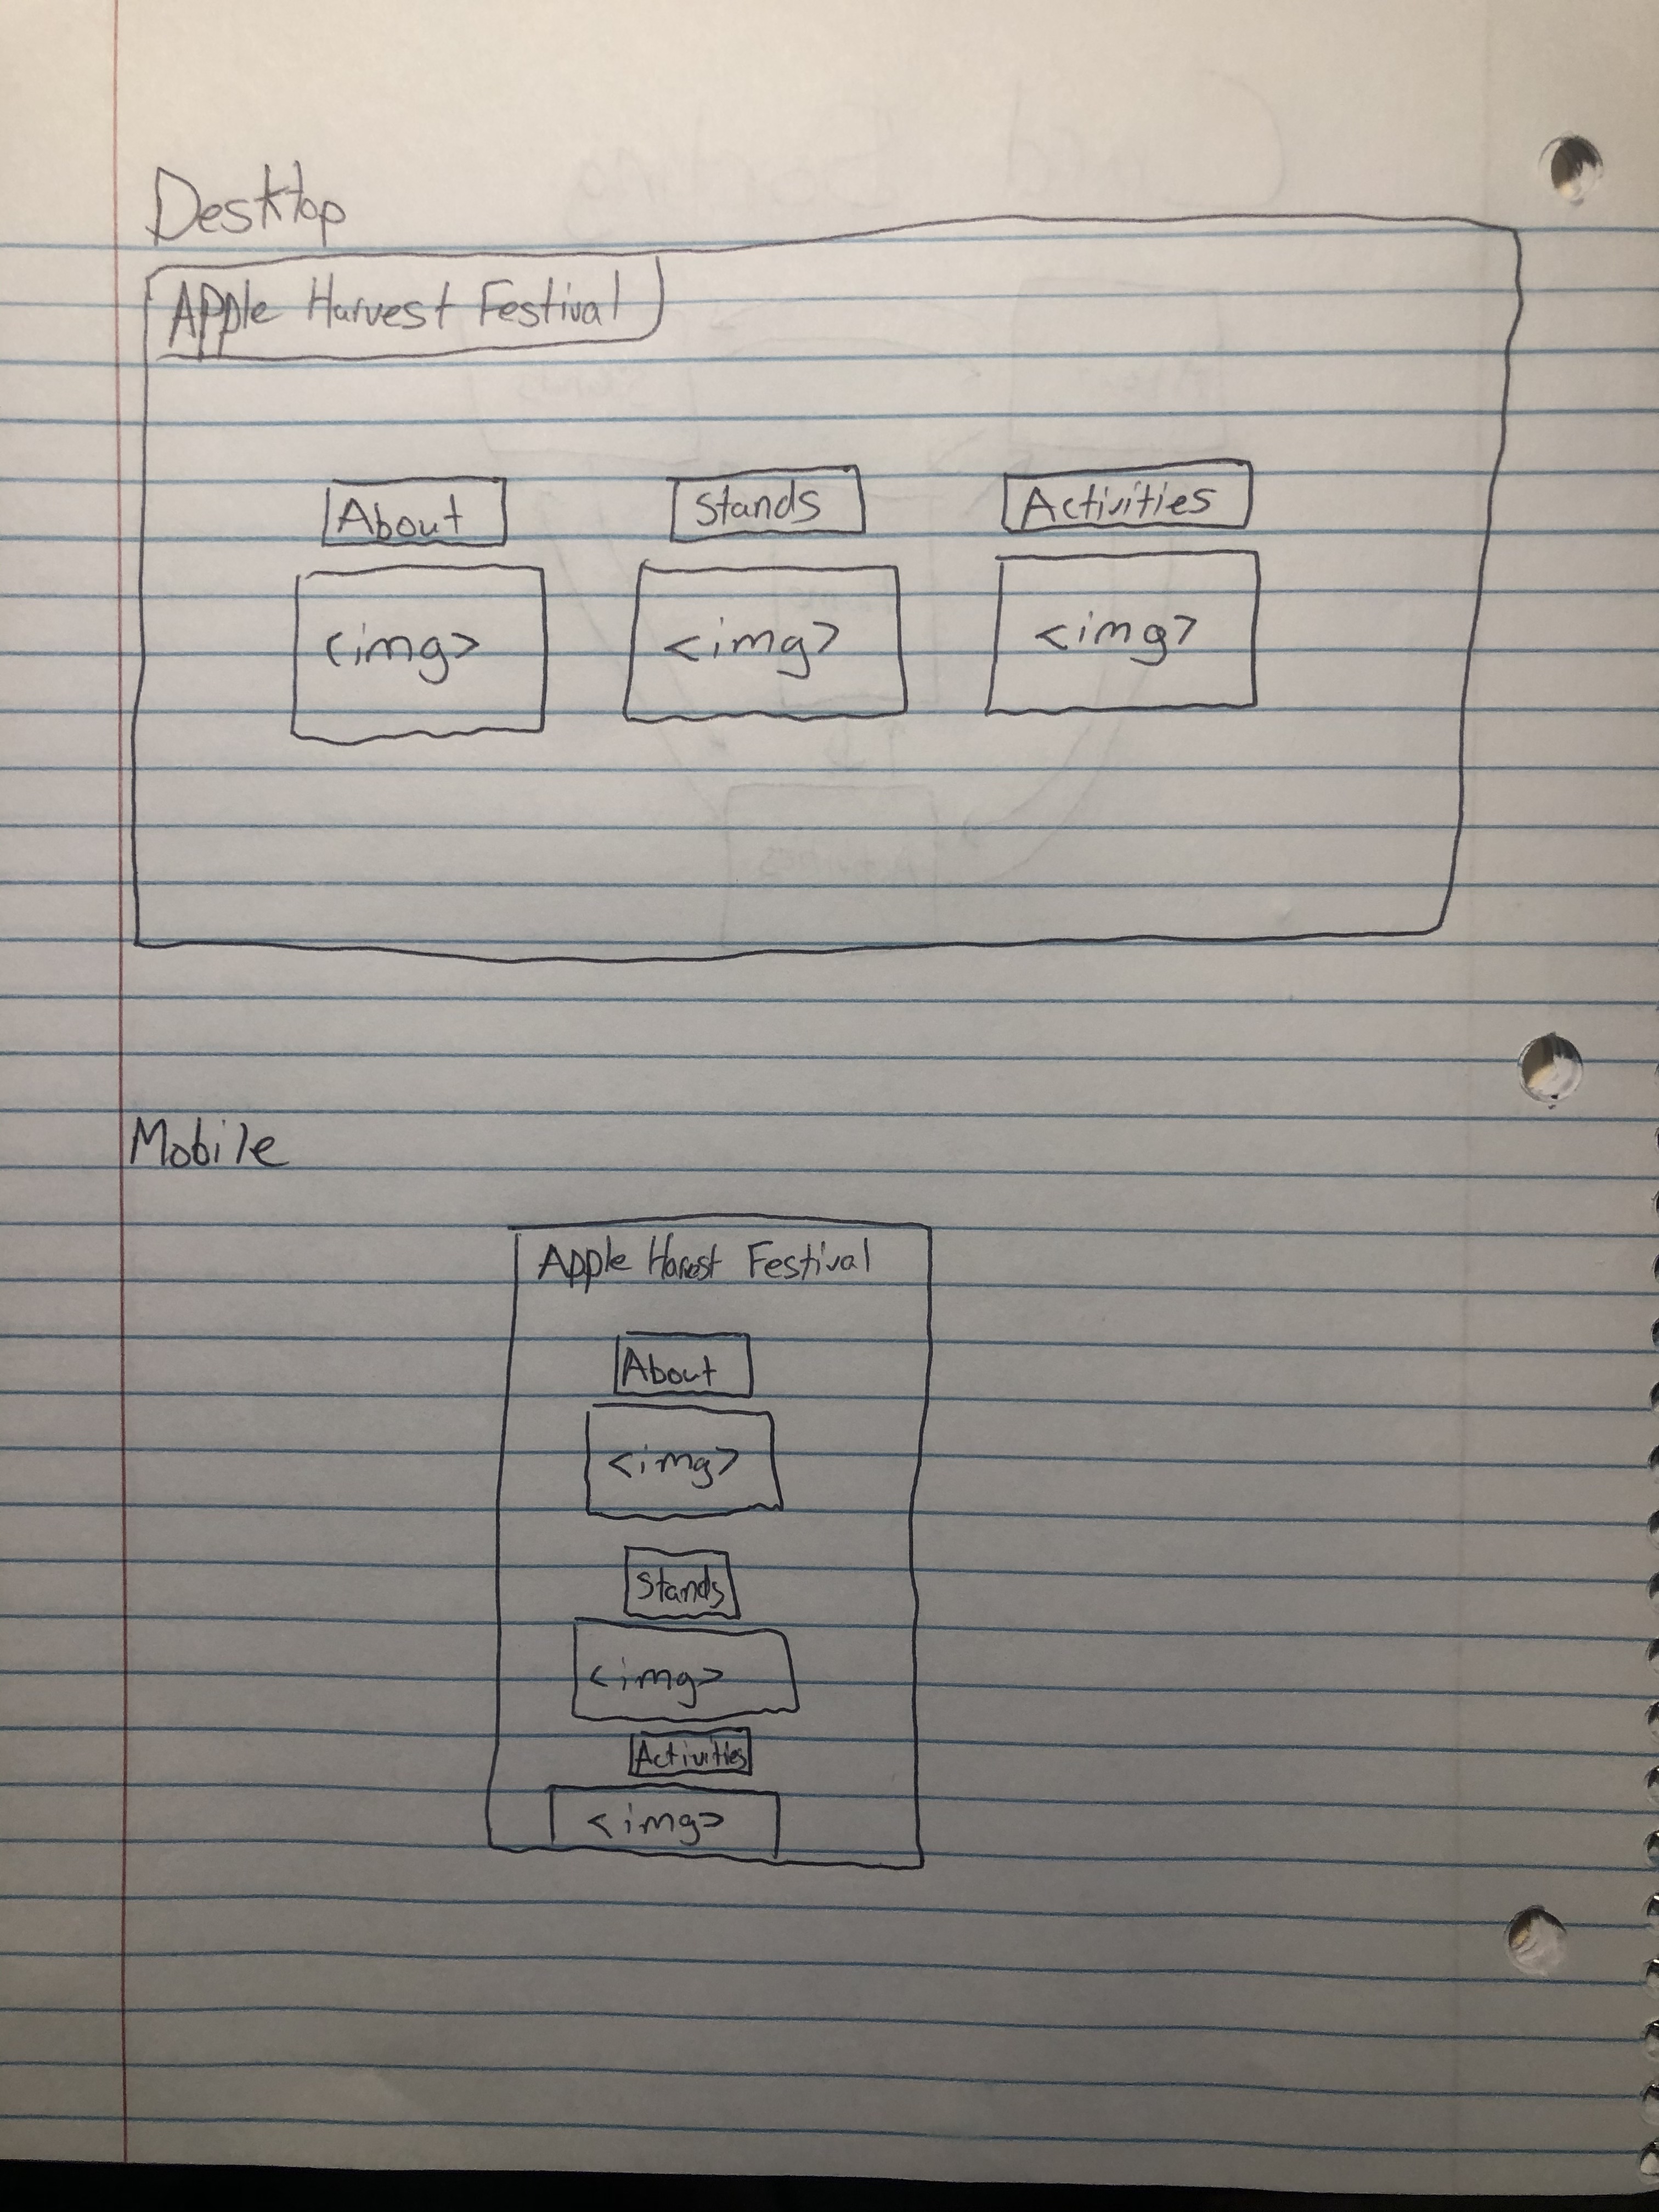 Desktop
Apple Harvest Festival
About Stands Activities
<img> <img> <img>
Mobile
Apple Harest Festival
About
<img>
Stands
<img>
Activities
<img>